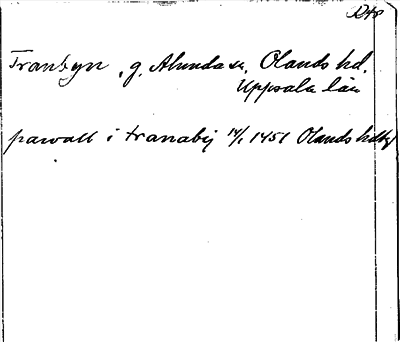 Tranbyn, g. Alunda sn, Olands hd.
Uppsala län
pawall i tranabij 14/1 1451 Olands hdbg